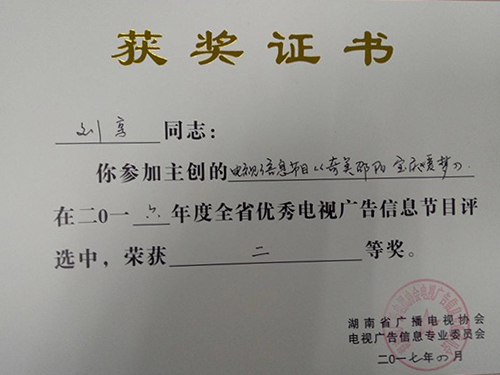 获奖证书
刘亨同志：
你参加主创的电视信息节目《奇美邵阳 宝庆爱梦》
在二0一六年度全省优秀电视广告信息节目评
选中，荣获二等奖。
湖南省广播电视协会
电视广告信息专业委员会
二0一七年四月